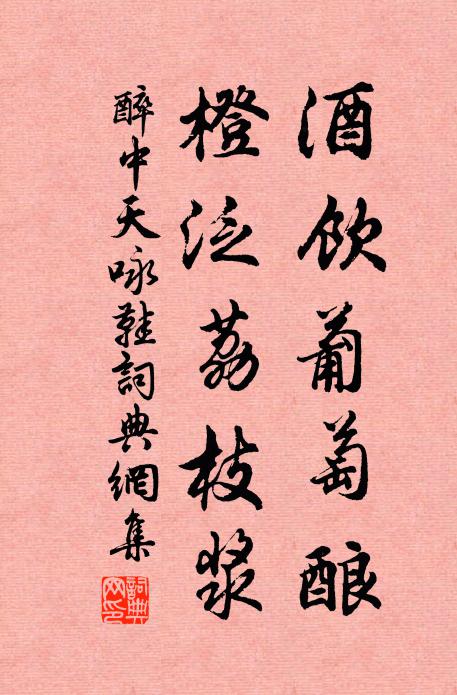 酒飲葡萄酿
橙泛荔枝漿
醉中天咏鞋詞典網集
詞典網印